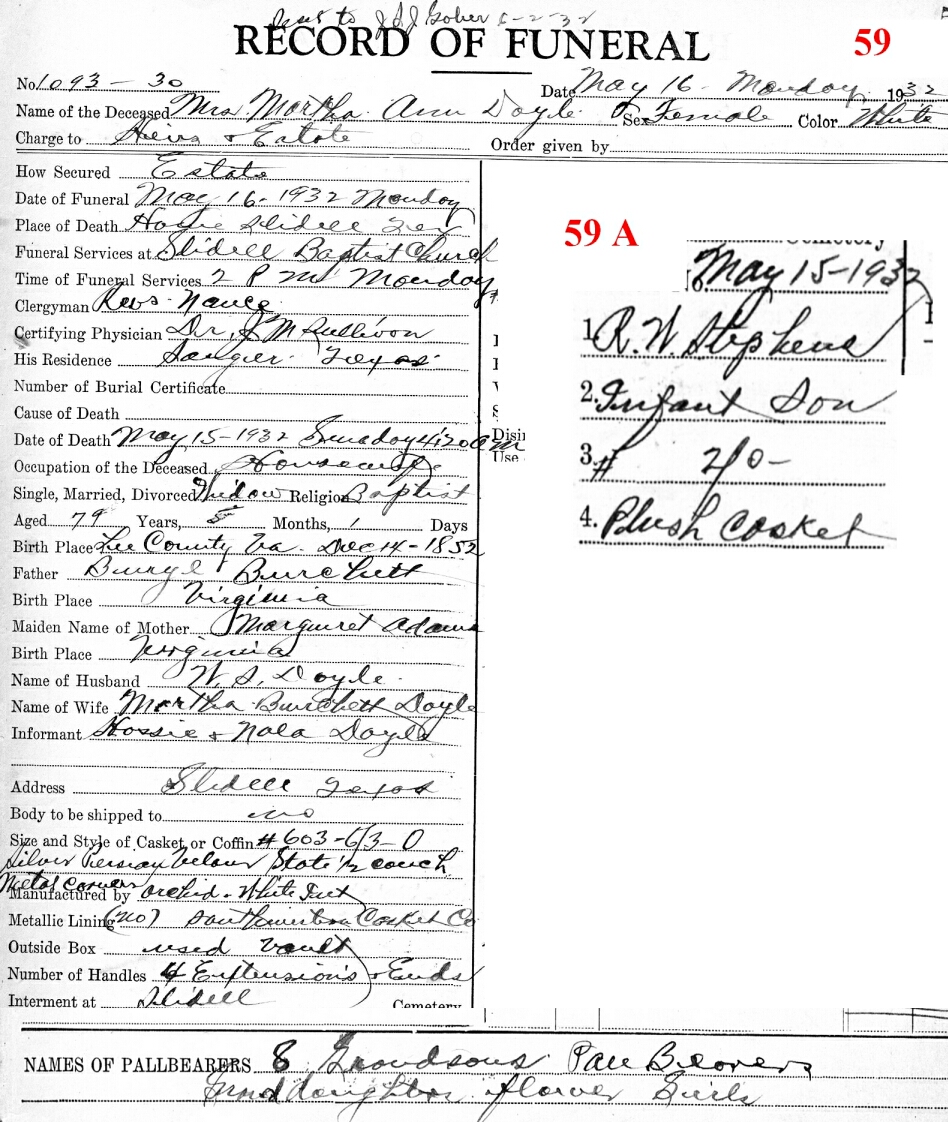 sent to J.D.J. Gober 6-2-32
RECORD OF FUNERAL 59
No. 1093-30 Date May 16. Monday 1932
Name of the Deceased Mrs. Martha Ann Doyle Sex Female Color White
Charge to Heirs & Estate Order given by
How Secured Estate
Date of Funeral May 16-1932 Monday
Place of Death Home Slidell Tex
Funeral Services at Slidell Baptist Church
Time of Funeral Services 2 PM Monday
Clergyman Revs. Nance
Certifying Physician Dr. J M Sullivan
His Residence Sanger Texas
Number of Burial Certificate
Cause of Death
Date of Death May 15-1932 Sunday 4:20 am
Occupation of the Deceased Housewife
Single, Married, Divorced Widow Religion Baptist
Aged 79 Years, 5 Months, 1 Days
Birth Place Lee County Va. Dec 14-1852
Father Burchett
Birth Place Virginia
Maiden Name of Mother Margaret Adams
Birth Place Virginia
Name of Husband W. S. Doyle
Name of Wife Martha Burchett Doyle
Informant Hossie & Nola Doyle
Address Slidell Texas
Body to be shipped to no
Size and Style of Casket or Coffin # 603-6/3-0
Silver Persian Velour State 1/2 couch
Metal Corners
Manufactured by orchid-White Int
Metallic Lining (no) Southwestern Casket Co
Outside Box used Vault
Number of Handles 4 Extensions & Ends
Interment at Slidell Cemetery
59 A
Cemetery
May 15-1932
1. R.W. Stephens
2. Infant Son
3. # 2/0-
4. Plush Casket
Disin
Use
NAMES OF PALLBEARERS 8 Grandsons Pall Bearers
Granddaughters flower Girls